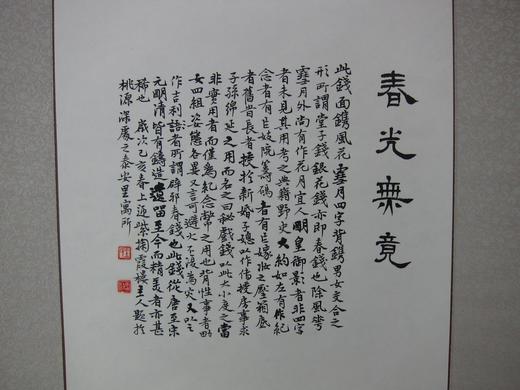 春光無竟
此錢面鐫風花雪月四字背鐫男女交合之
形所謂堂子錢銀花錢亦即春錢也除風花
雪月外尚有作花月宜人明皇御影者非四字
者未見其用考之典籍野史大約如左有作紀
念者有㠯妓院籌碼者有㠯嫁妝之壓箱底
者舊昔長者授於新婚子媳以作傳授房事求
子孫綿延之用而名之曰秘戲錢以此大小度之當
非實用者而僅為紀念幣之用也背性事者
女四組姿態各異又言可避火不復為災又以
作吉利語者所謂辟邪春錢也此錢從唐至宋
元明清皆有鑄造遺留至今而精美者亦甚
稀也 歲次乙亥春上 紫掬霞樓主人題於
桃源深處之泰安里寓所